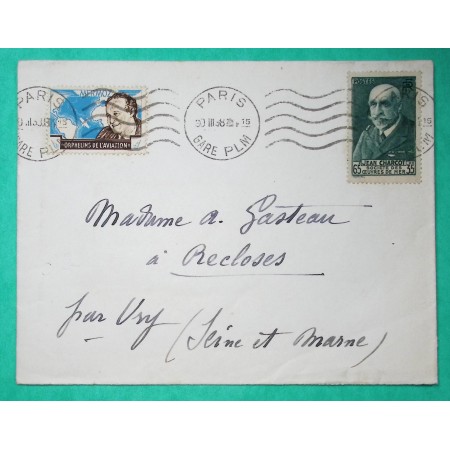 PARIS
GARE PLM
ORPHELINS DE L'AVIATION
PARIS
GARE PLM
POSTES
JEAN CHARCOT
SOCIÉTÉ DES
ŒUVRES DE MER
65 35
Madame A. Gasteau
à Recloses
par Ury (Seine et Marne)